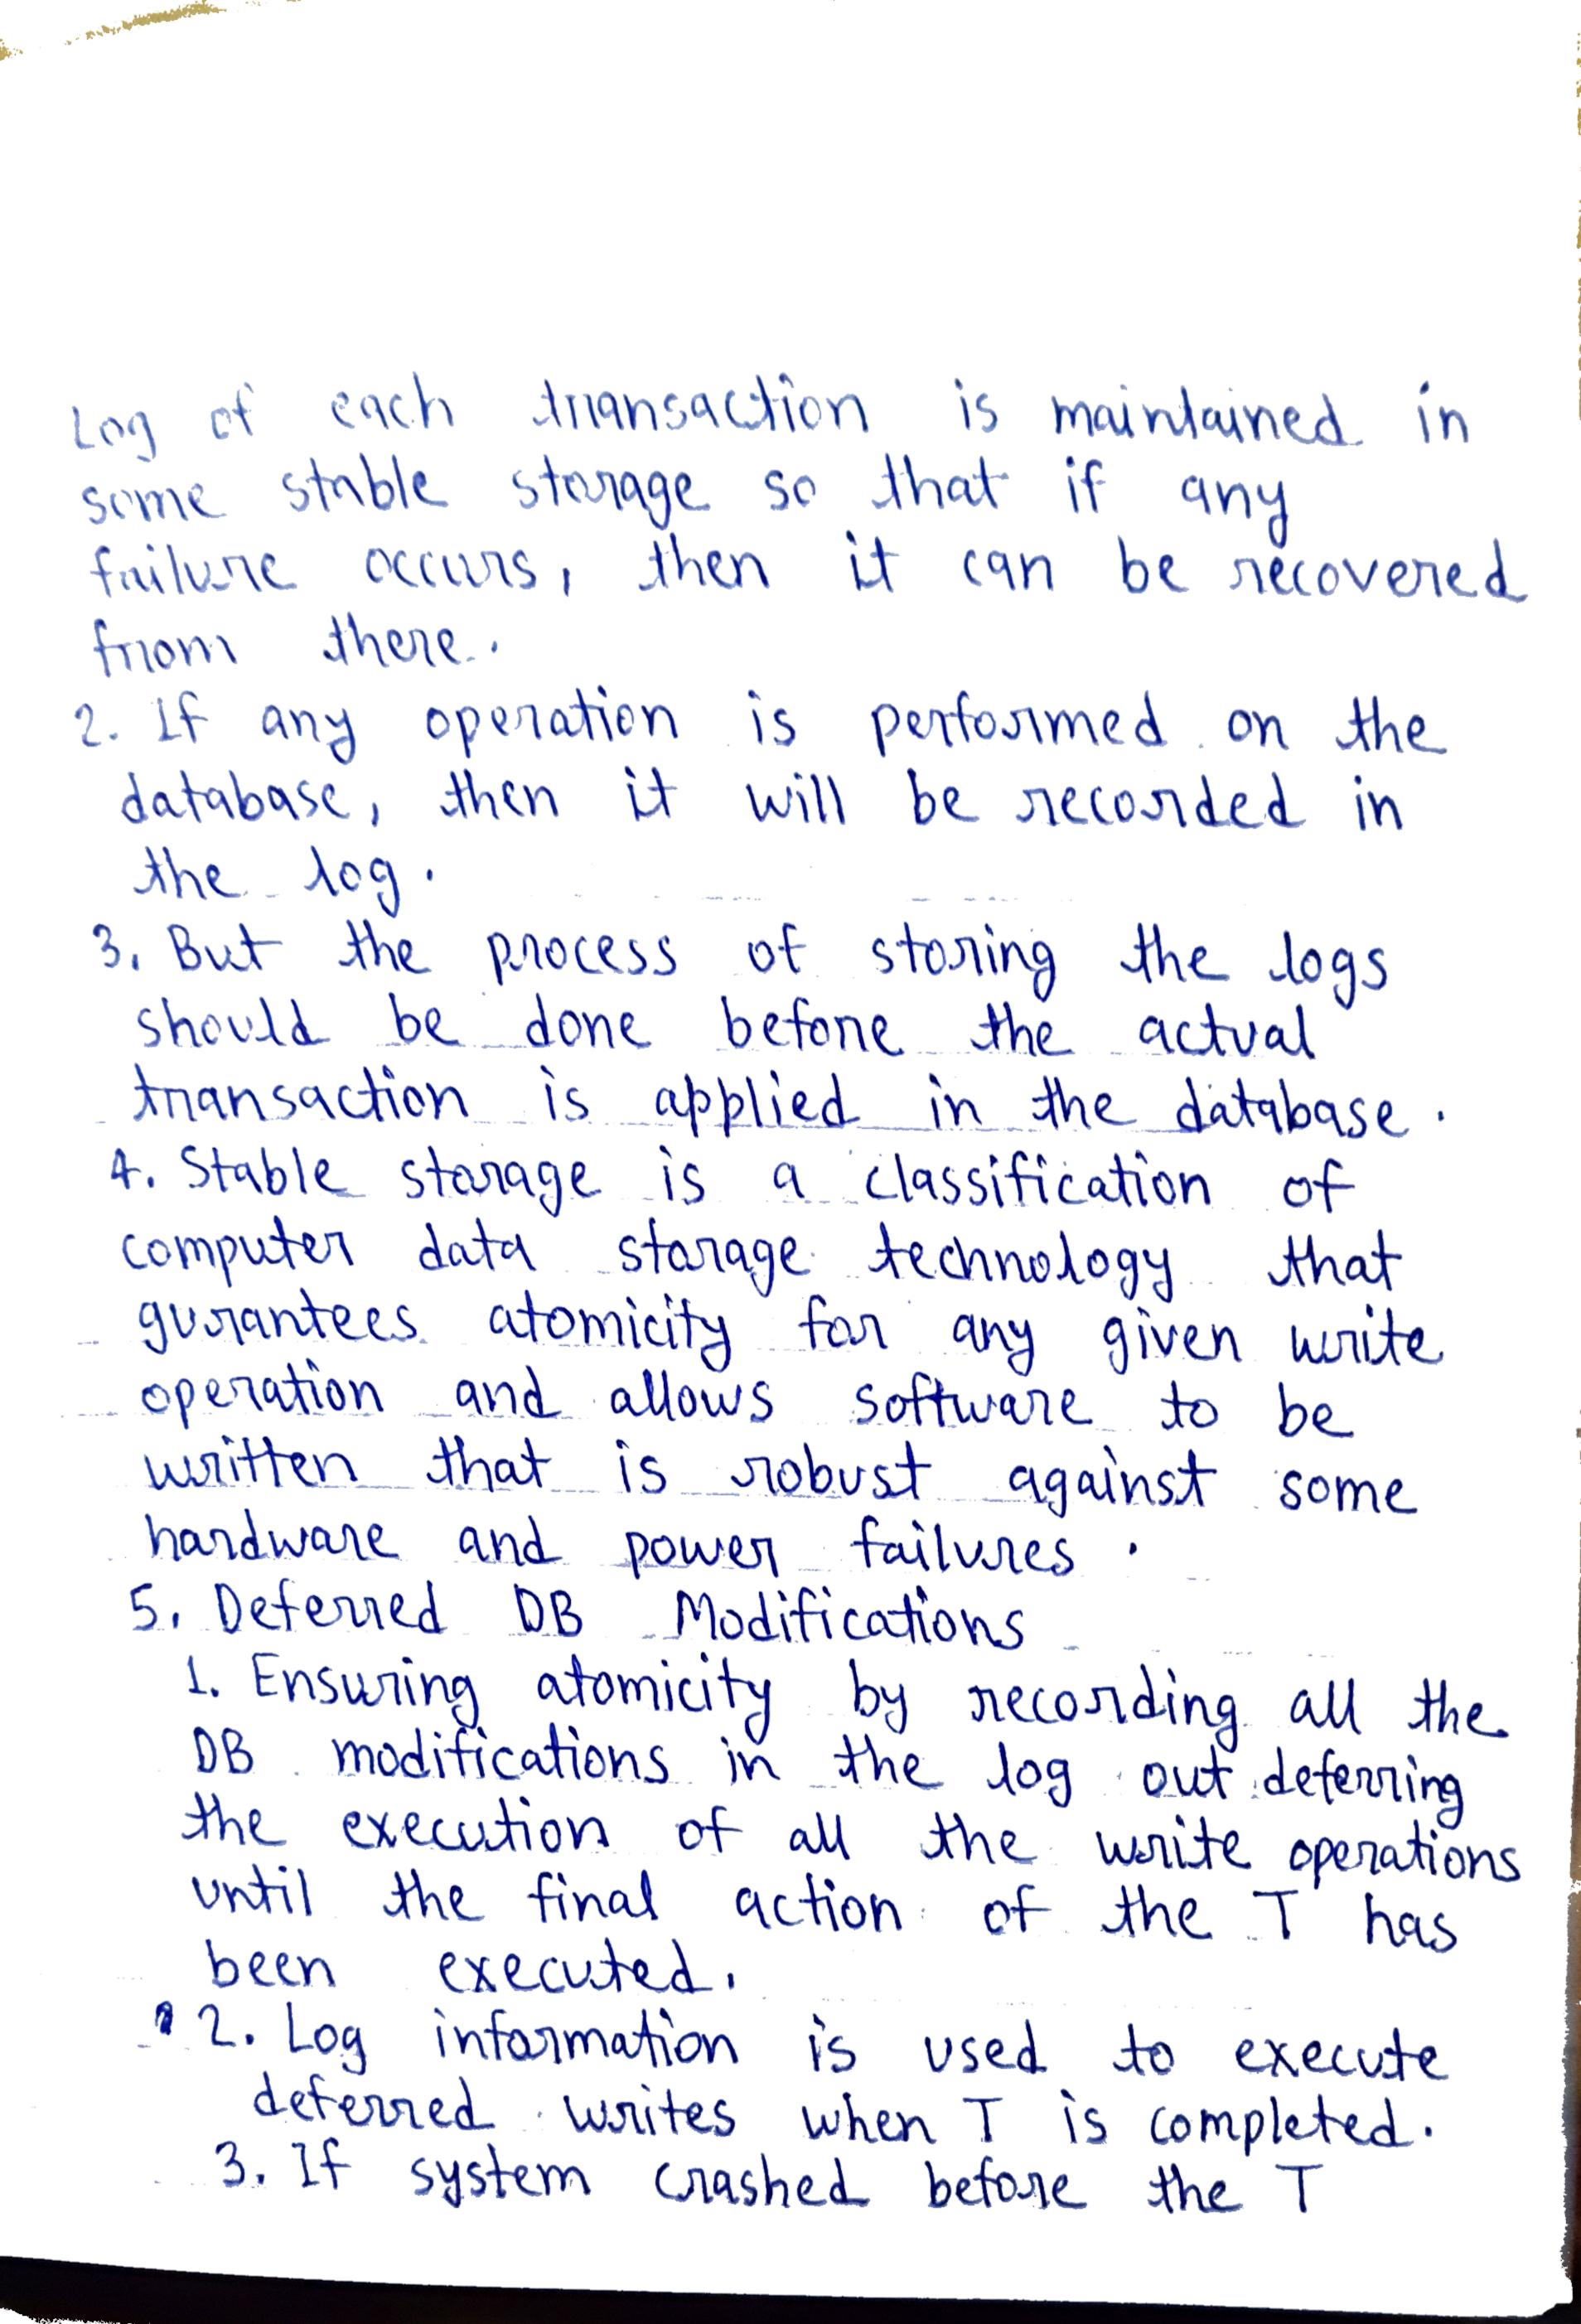 Log of each transaction is maintained in
some stable storage so that if any
failure occurs, then it can be recovered
from there.
2. If any operation is performed on the
database, then it will be recorded in
the log.
3. But the process of storing the logs
should be done before the actual
transaction is applied in the database.
4. Stable storage is a classification of
computer data storage technology that
gurantees atomicity for any given write
operation and allows software to be
written that is robust against some
hardware and power failures.
5. Deferred DB Modifications
1. Ensuring atomicity by recording all the
DB modifications in the log out deferring
the execution of all the write operations
until the final action of the T has
been executed.
2. Log information is used to execute
deferred writes when T is completed.
3. If system crashed before the T